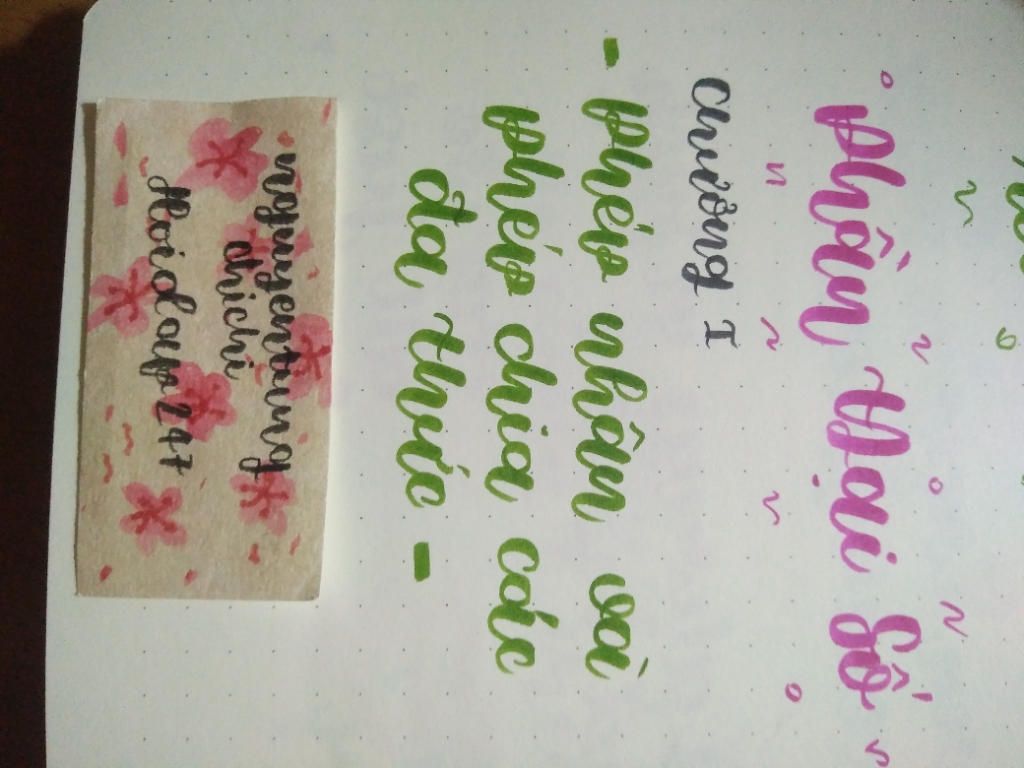 Phần Đại Số
Chương I
- phép nhân và
phép chia các
đa thức -
nguyentung
chichi
Hoidap247